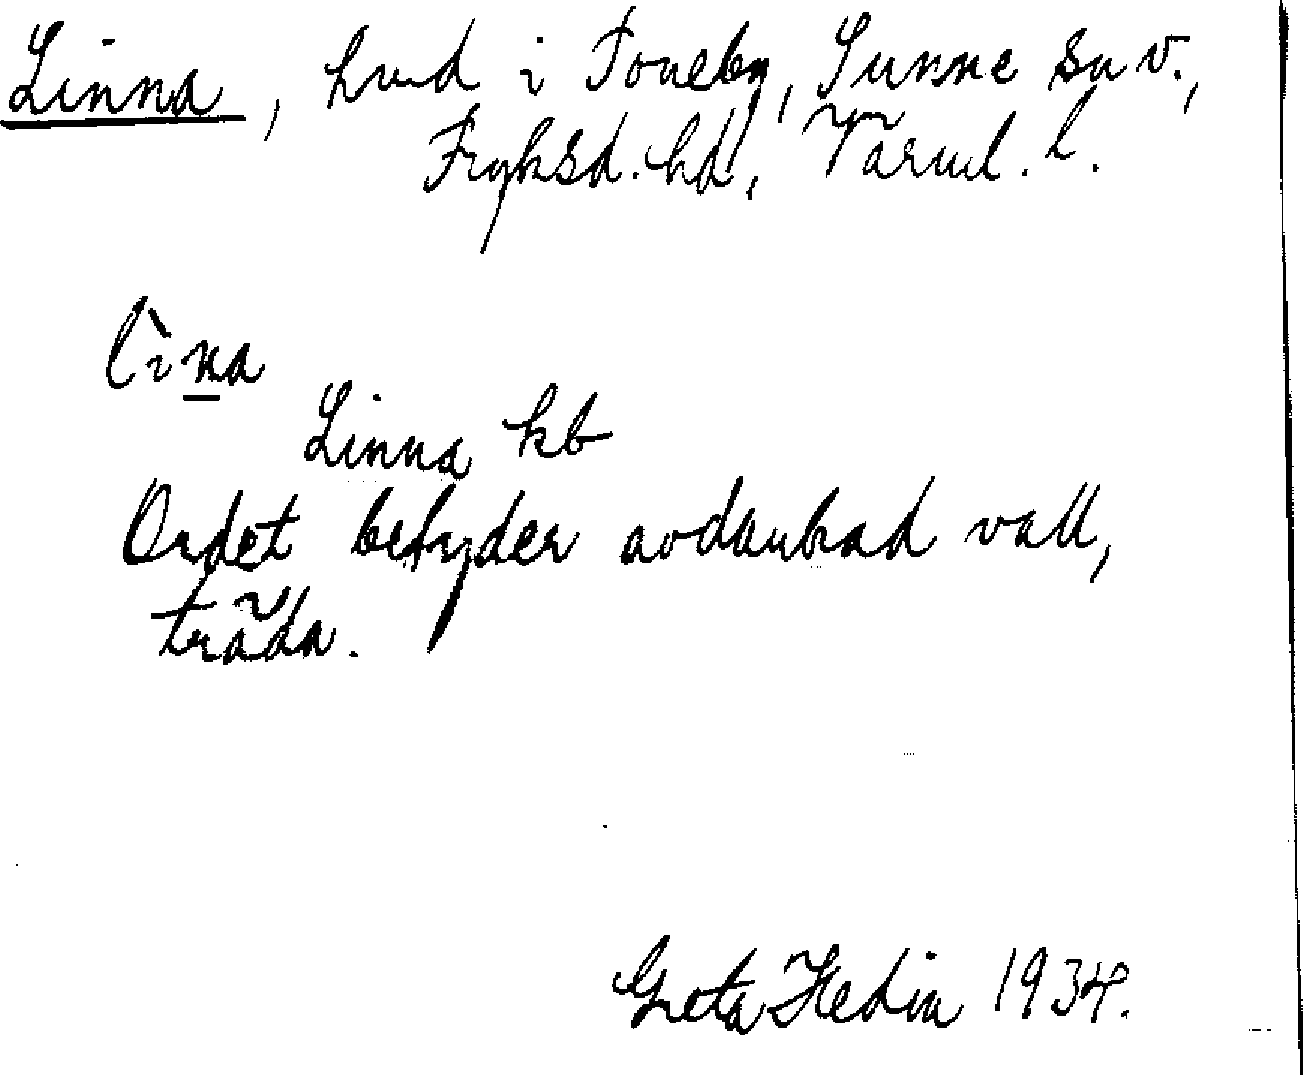 Linna, hmd i Toneby, Sunne sn v.,
Fryksd. hd, Värml. l.
lìna
Linna kb
Ordet betyder avdankad vall,
träda.
Greta Hedin 1934.